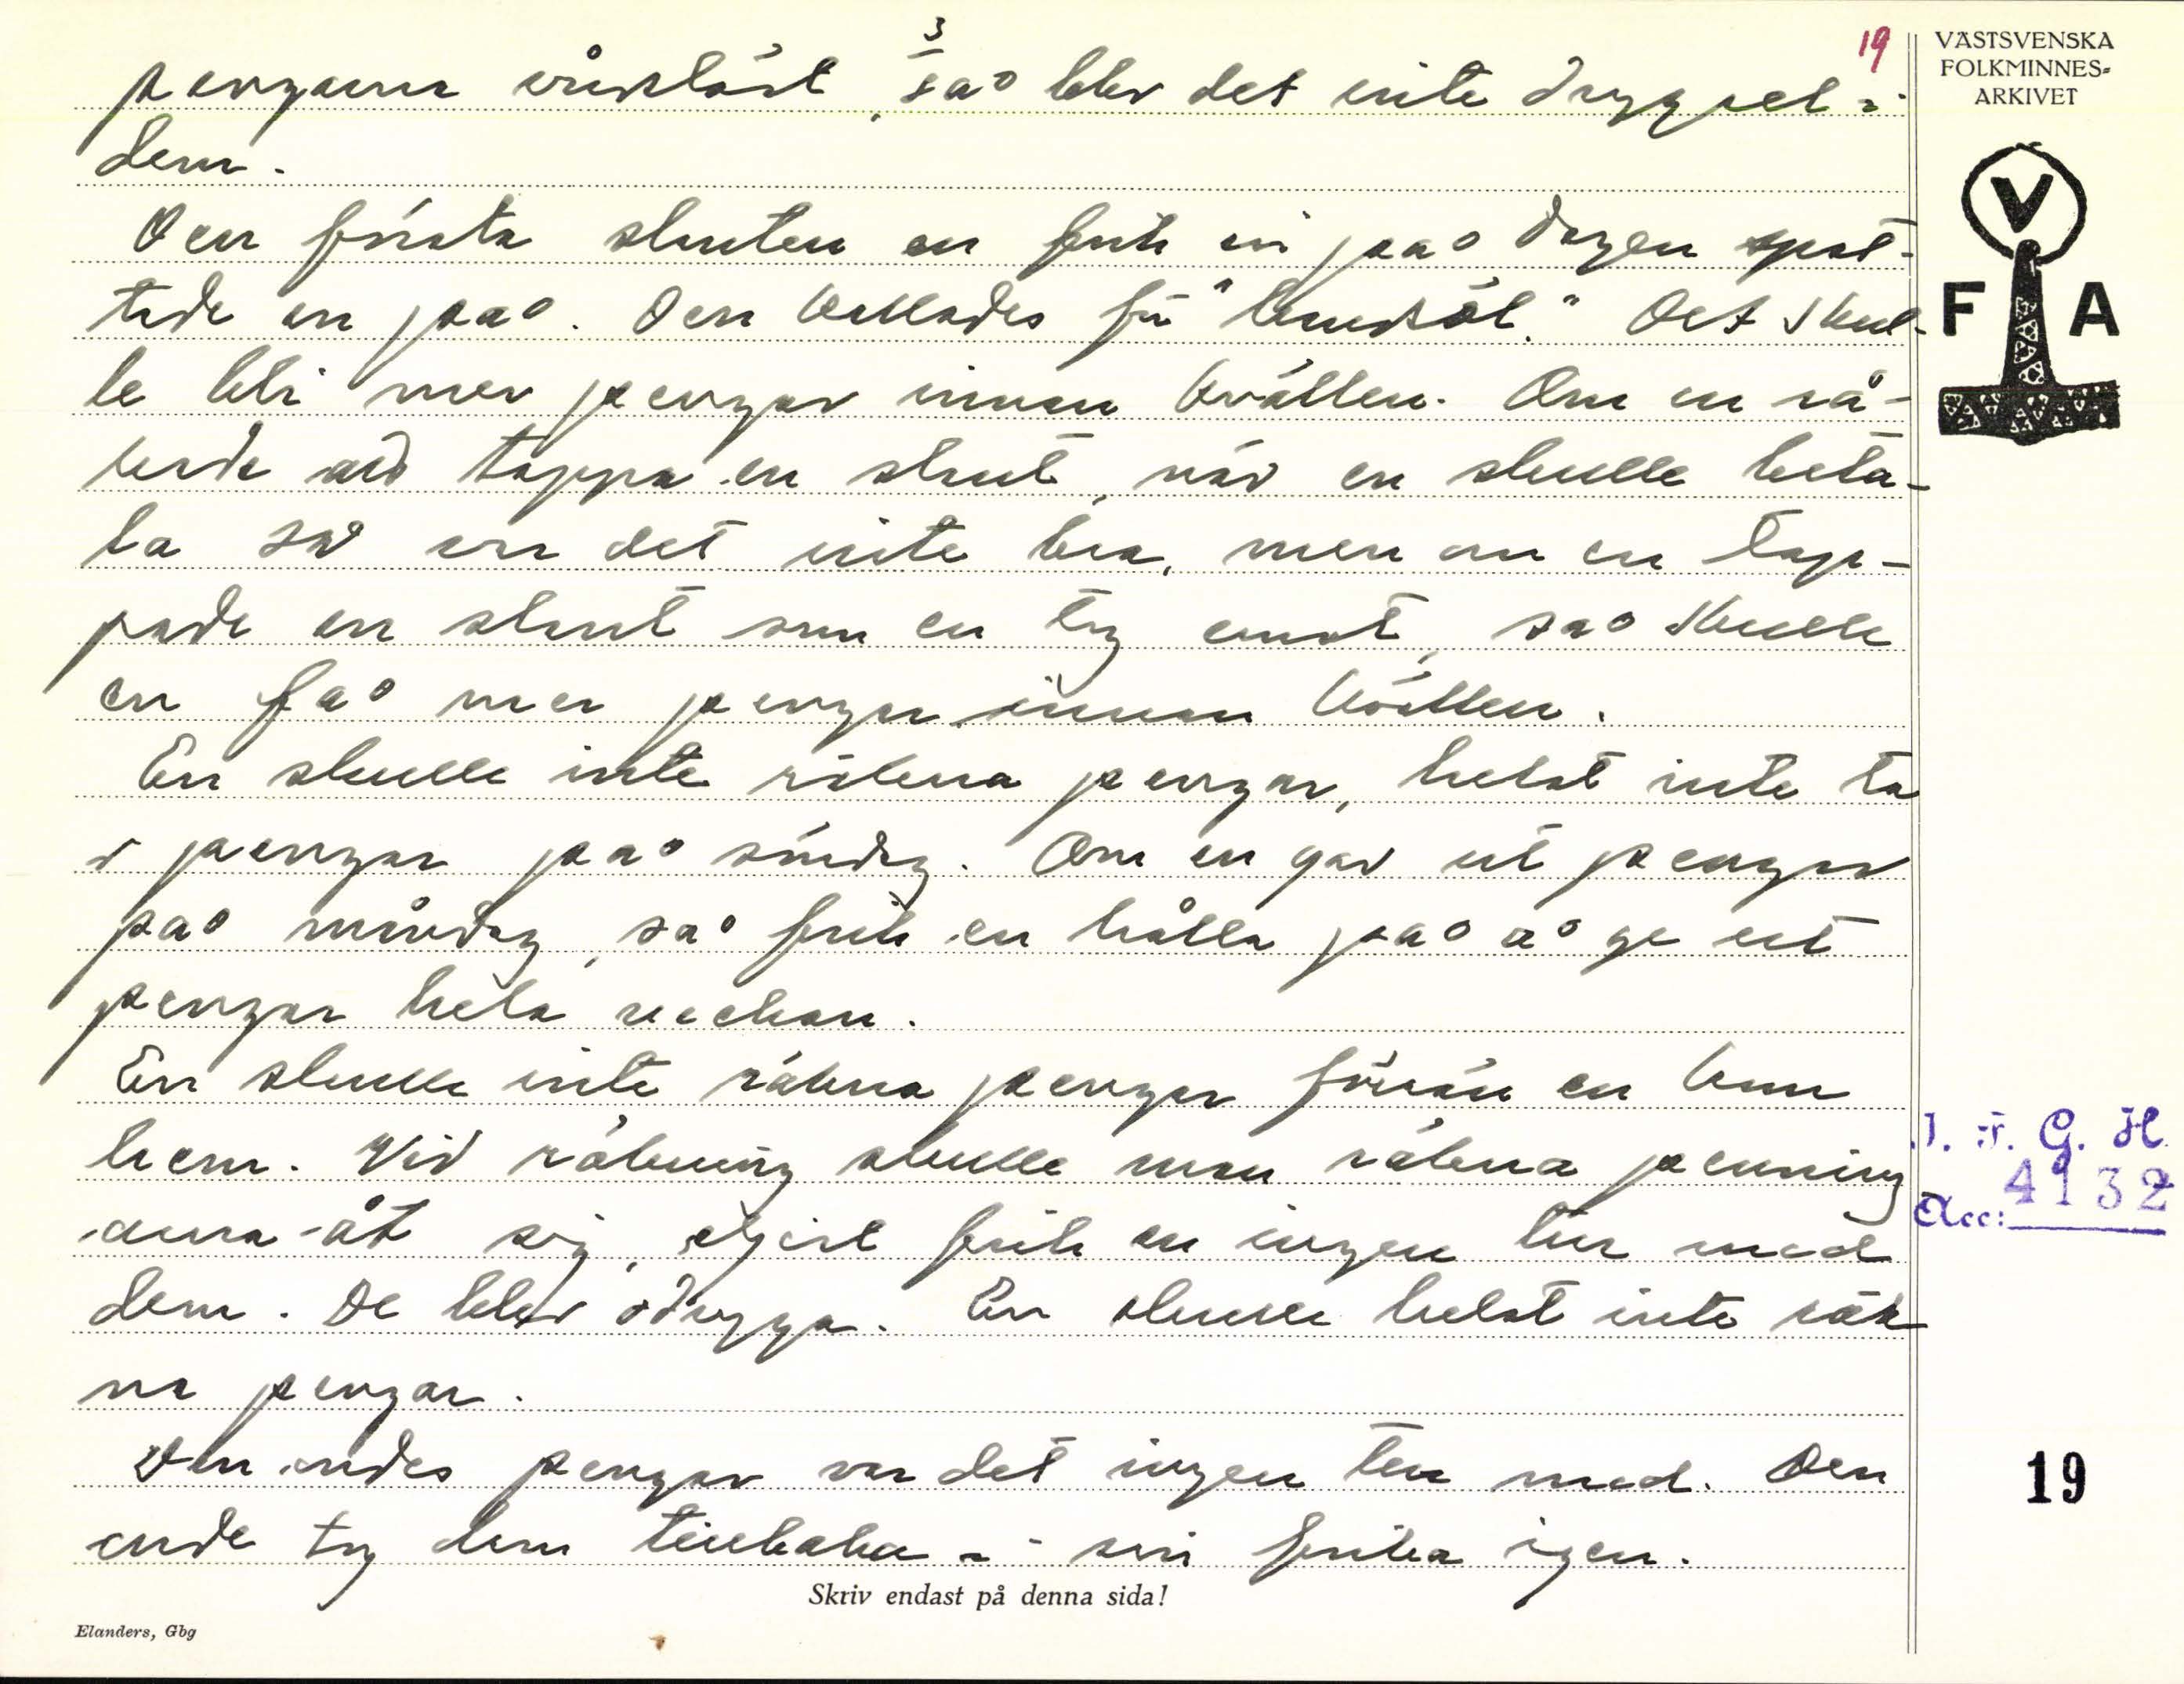 3
19
pengarna vårdslöst, så blev det inte dryggsel i
dem.
Den första slanten en fick in på dagen spot-
tade en på. Den kallades för "handsöl." Det skul-
le bli mer pengar innan kvällen. Om en rå-
kade att tappa en slant, när en skulle beta-
la så var det inte bra, men om en tap-
pade en slant som en tog emot, så skulle
en få mer pengar innan kvällen.
En skulle inte räkna pengar, helst inte ta
i pengar på söndag. Om en gav ut pengar
på måndag, så fick en hålla på å ge ut
pengar hela veckan.
En skulle inte räkna pengar förrän en kom
hem. Vid räkning skulle man räkna penning
arna åt sig, eljest fick en ingen tur med
dem. De blev odrygga. En skulle helst inte räk
na pengar.
Den ondes pengar var det ingen tur med. Den
onde tog dem tillbaka i sin ficka igen.
Skriv endast på denna sida!
Elanders, Gbg
VÄSTSVENSKA
FOLKMINNES-
ARKIVET
V
F A
I. F. G. H.
Acc: 4132
19